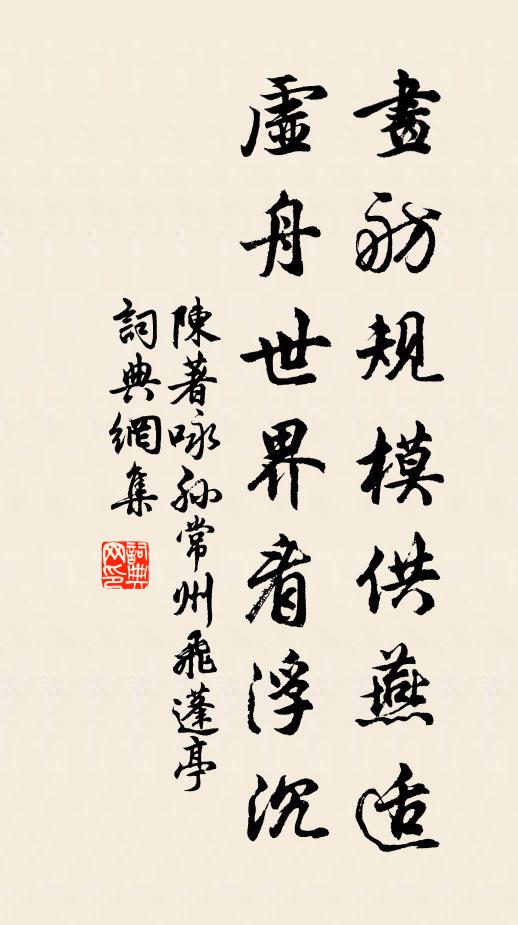 畫舫規模供燕适
虛舟世界看浮沉
陳著咏孙常州飛蓬亭
詞典網集
詞典网印